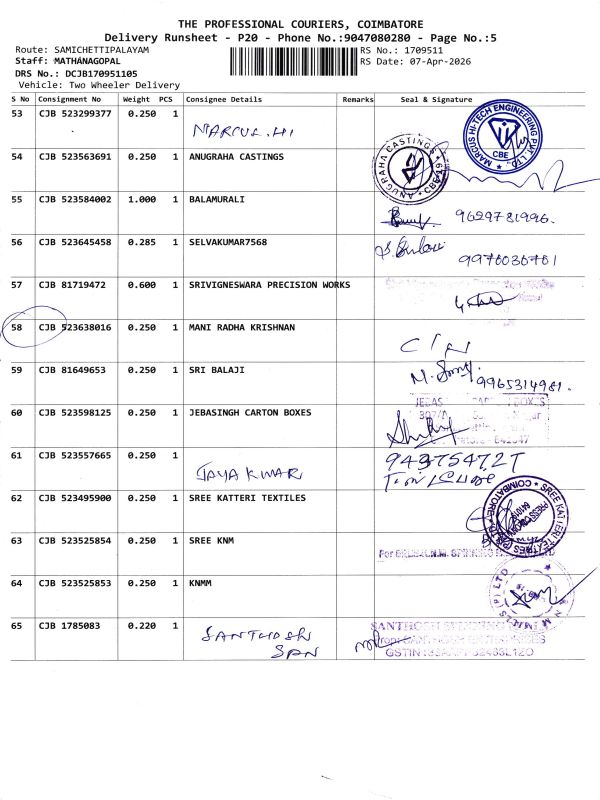 THE PROFESSIONAL COURIERS, COIMBATORE
Delivery Runsheet - P20 - Phone No.:9047080280 - Page No.:5
Route: SAMICHETTIPALAYAM
Staff: MATHANAGOPAL
DRS No.: DCJB170951105
Vehicle: Two Wheeler Delivery
RS No.: 1709511
RS Date: 07-Apr-2026
S No Consignment No Weight PCS Consignee Details Remarks Seal & Signature
53 CJB 523299377 0.250 1 MARCUS HI
MARCUS HI-TECH ENGINEERING PVT. LTD. CBE
54 CJB 523563691 0.250 1 ANUGRAHA CASTINGS
ANUGRAHA CASTINGS
55 CJB 523584002 1.000 1 BALAMURALI
9629781996.
56 CJB 523645458 0.285 1 SELVAKUMAR7568
9976036761
57 CJB 81719472 0.600 1 SRIVIGNESWARA PRECISION WORKS
58 CJB 523638016 0.250 1 MANI RADHA KRISHNAN
59 CJB 81649653 0.250 1 SRI BALAJI
9965314981.
60 CJB 523598125 0.250 1 JEBASINGH CARTON BOXES
61 CJB 523557665 0.250 1 JAYA KUMAR
943754727
62 CJB 523495900 0.250 1 SREE KATTERI TEXTILES
SREE KATTERI TEXTILES COIMBATORE
63 CJB 523525854 0.250 1 SREE KNM
64 CJB 523525853 0.250 1 KNMM
65 CJB 1785083 0.220 1 SANTHOSH
SPN
SANTHOSH SPINNING